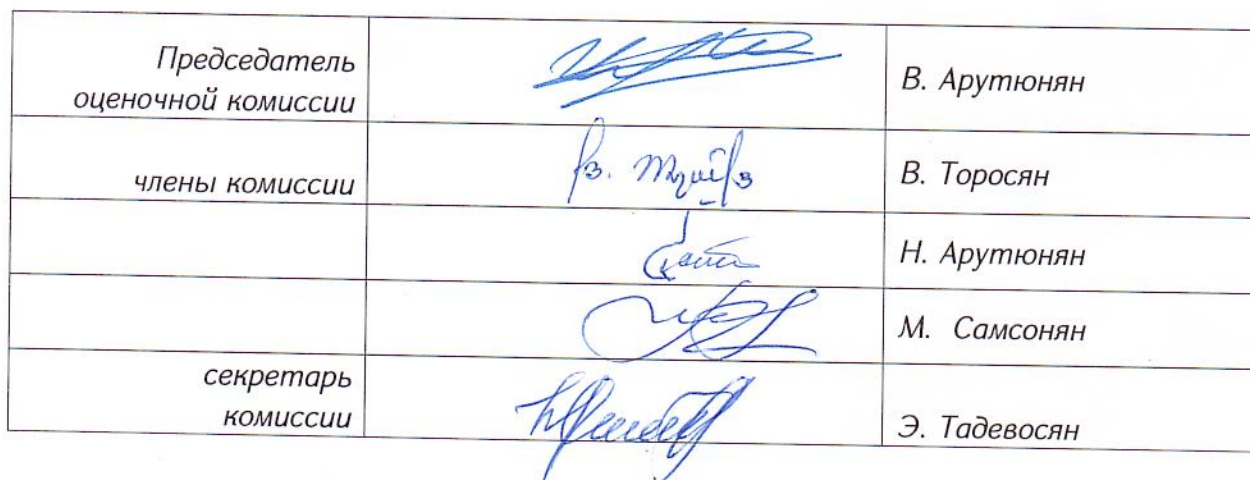 Председатель
оценочной комиссии
В. Арутюнян
члены комиссии
В. Торосян
Н. Арутюнян
М. Самсонян
секретарь
комиссии
Э. Тадевосян